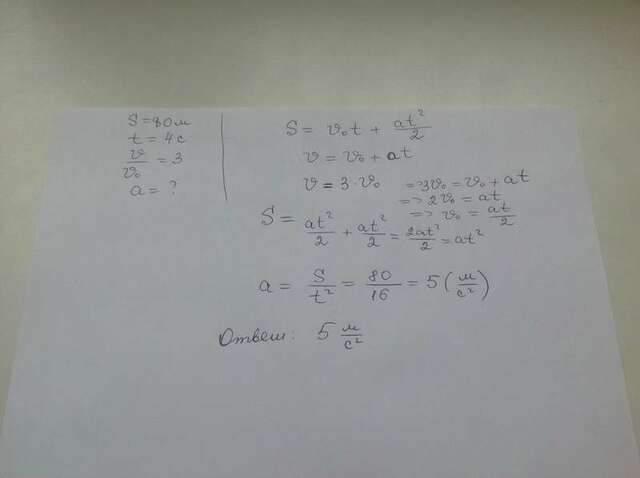 S = 80 м
t = 4 с
v/v₀ = 3
a = ?
S = v₀t + at²/2
v = v₀ + at
v = 3 · v₀ => 3v₀ = v₀ + at
=> 2v₀ = at
=> v₀ = at/2
S = at²/2 + at²/2 = 2at²/2 = at²
a = S/t² = 80/16 = 5 (м/с²)
Ответ: 5 м/с²